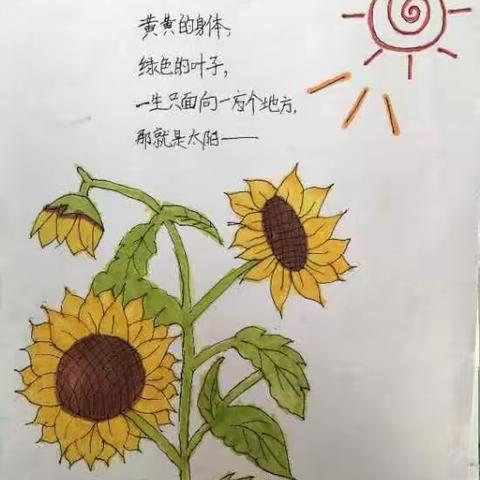 黄黄的身体,
绿色的叶子,
一生只面向一个地方,
那就是太阳——